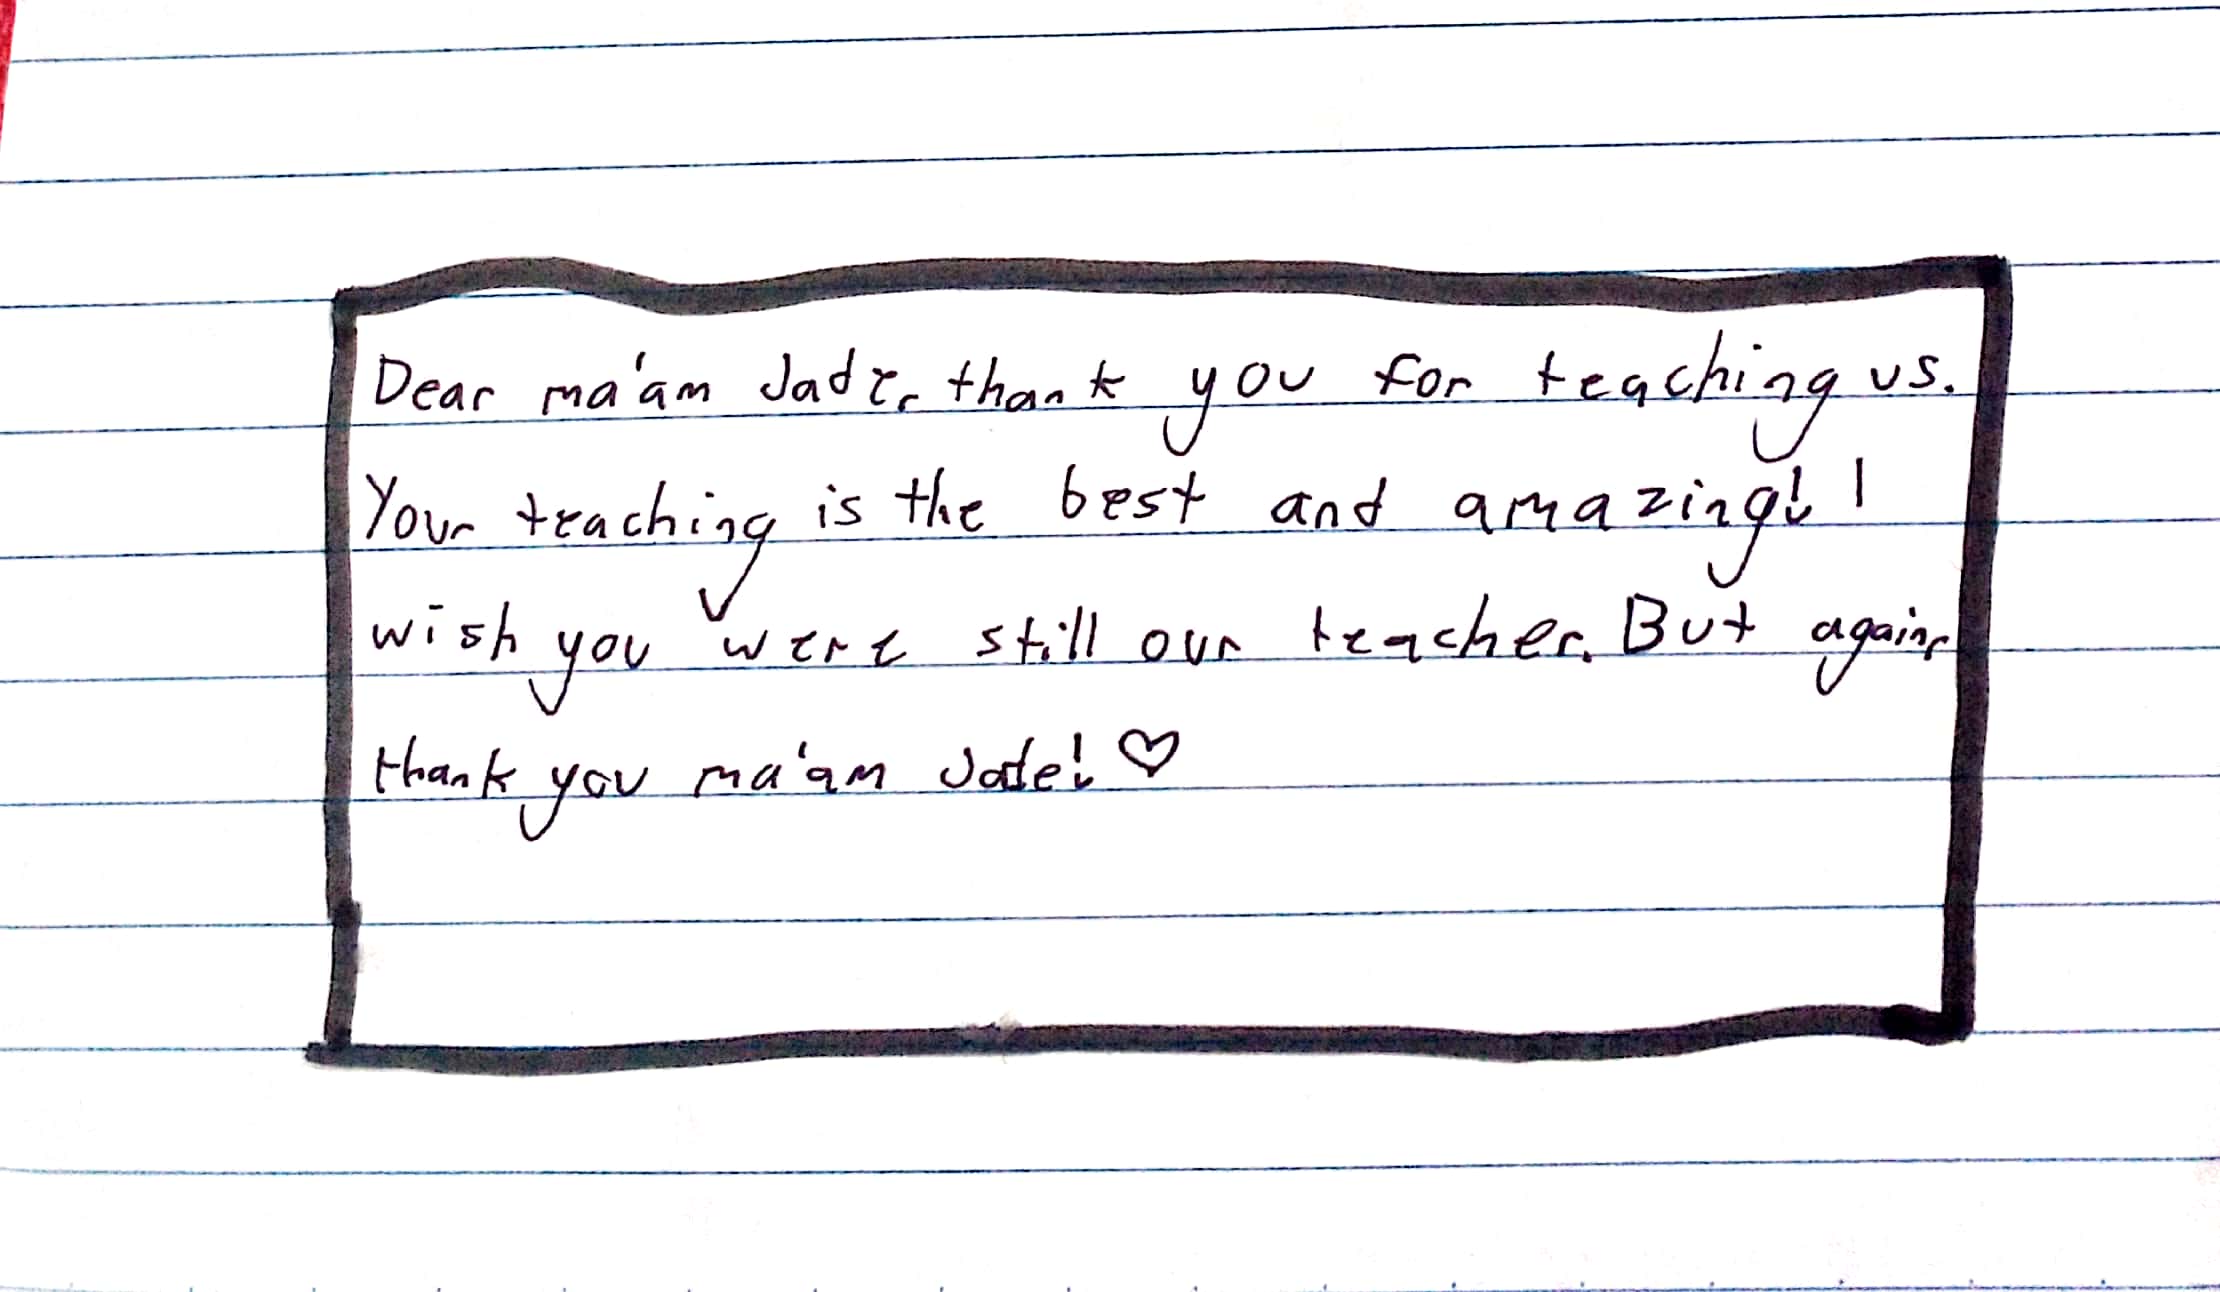 Dear ma'am Jade, thank you for teaching us.
Your teaching is the best and amazing! I
wish you were still our teacher. But again,
thank you ma'am Jade! ♡